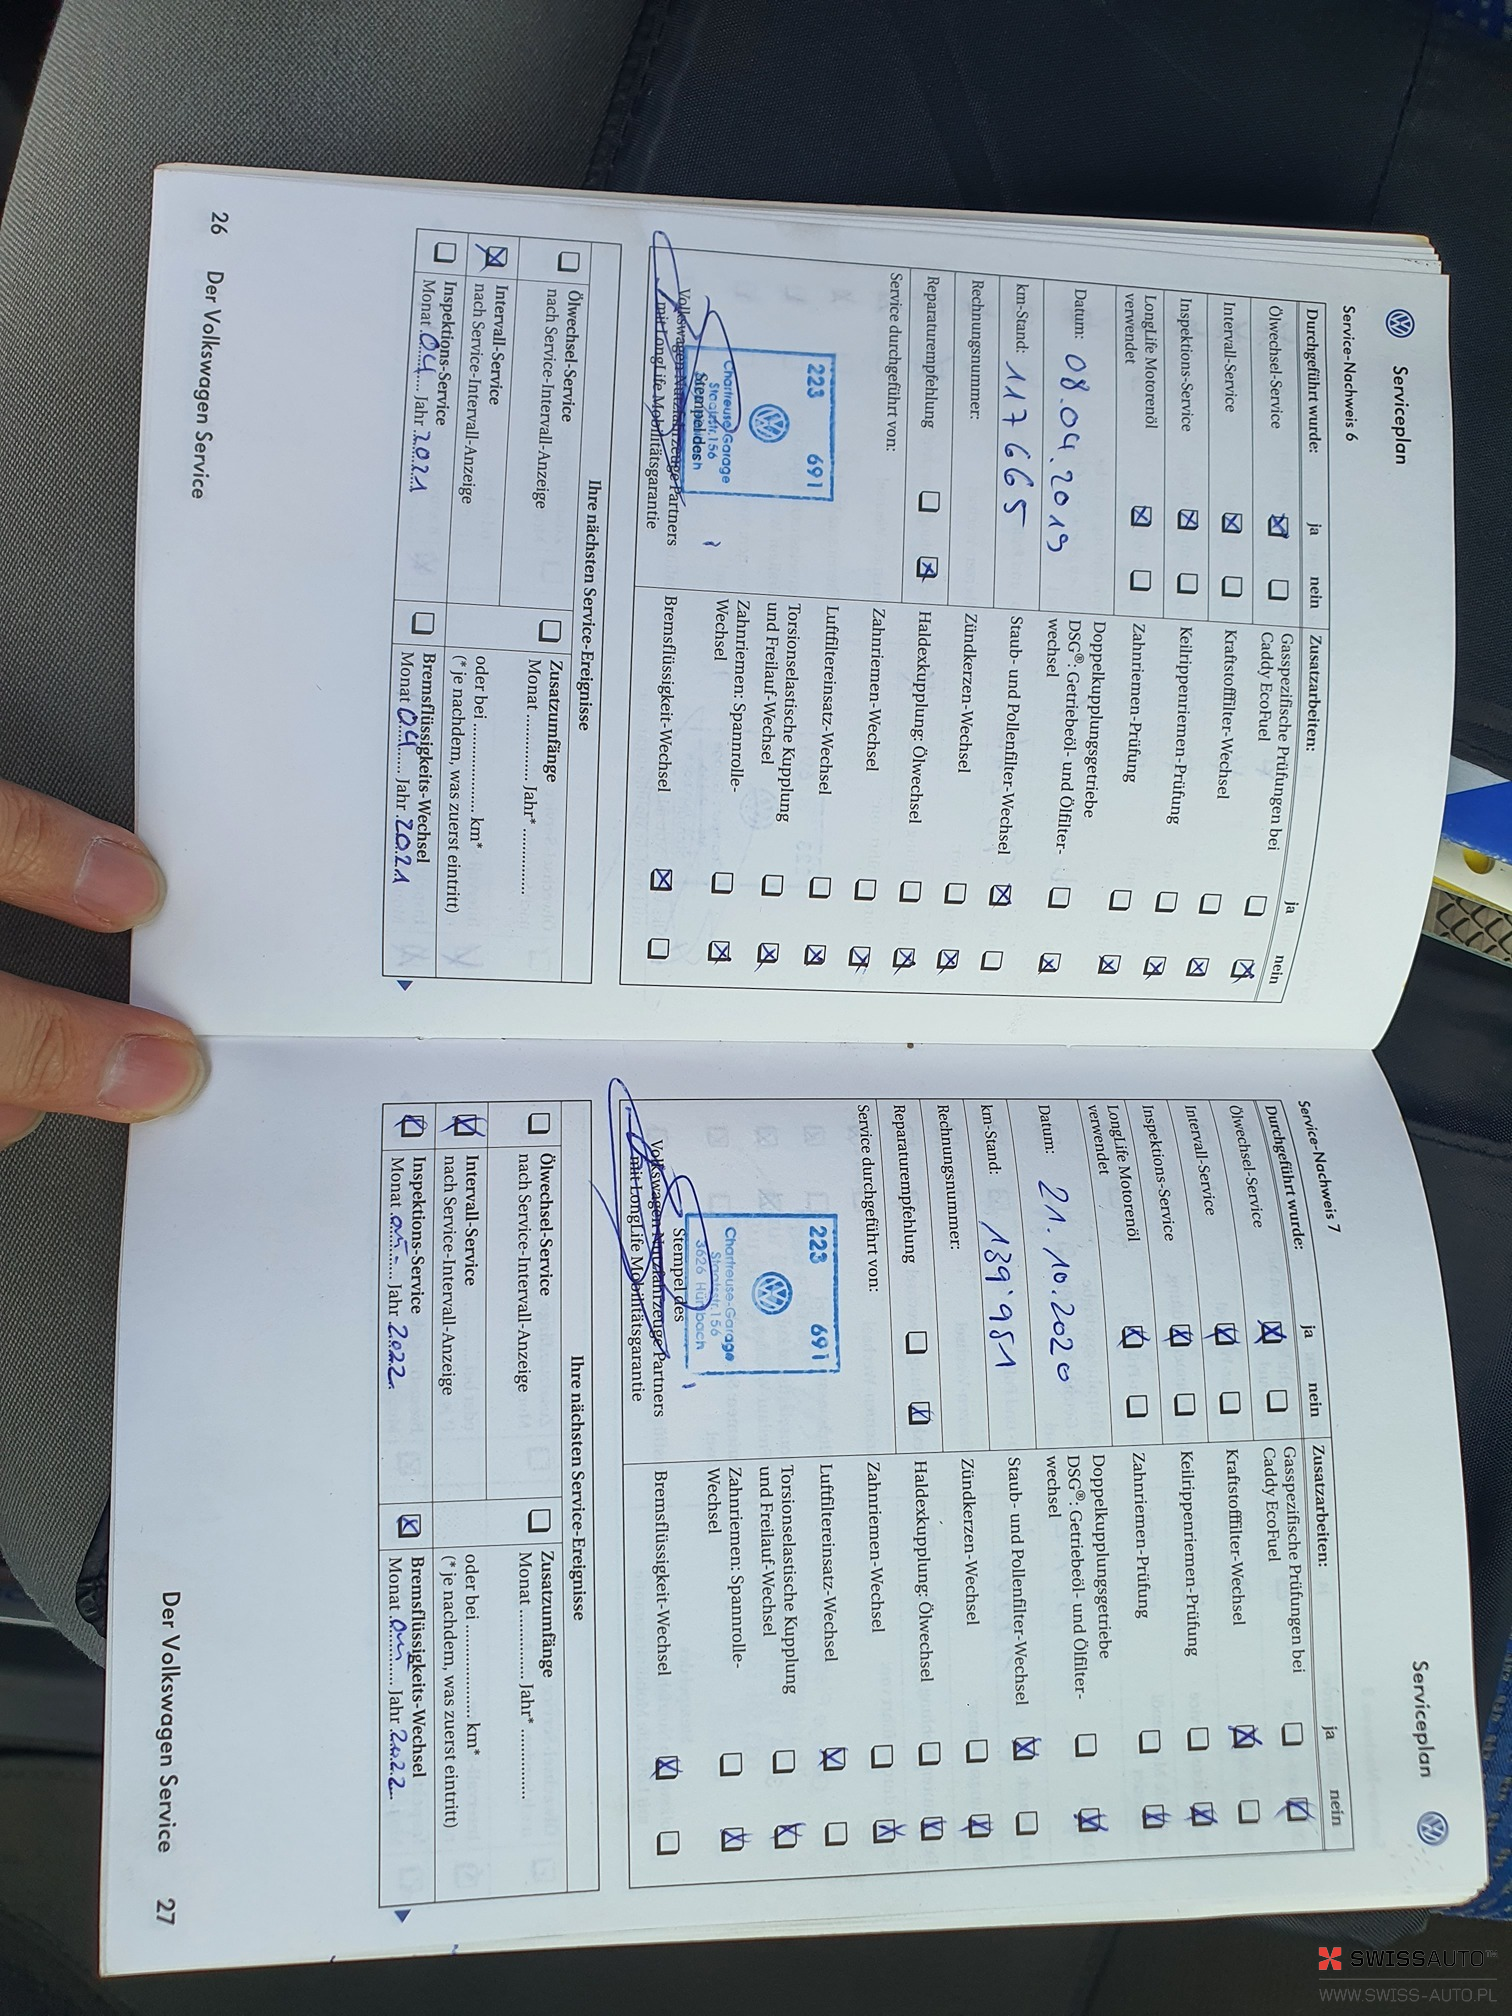 Serviceplan
Service-Nachweis 6
Durchgeführt wurde: ja nein
Ölwechsel-Service
Intervall-Service
Inspektions-Service
LongLife Motorenöl
verwendet
Datum: 08.04.2019
km-Stand: 117665
Rechnungsnummer:
Reparaturempfehlung
Service durchgeführt von:
223 691
Chartreuse Garage
Staatsstr. 156
Stempel des
Volkswagen Nutzfahrzeuge Partners
mit LongLife Mobilitätsgarantie
Zusatzarbeiten: ja nein
Gasspezifische Prüfungen bei
Caddy EcoFuel
Kraftstofffilter-Wechsel
Keilrippenriemen-Prüfung
Zahnriemen-Prüfung
Doppelkupplungsgetriebe
DSG®: Getriebeöl- und Ölfilter-
wechsel
Staub- und Pollenfilter-Wechsel
Zündkerzen-Wechsel
Haldexkupplung: Ölwechsel
Zahnriemen-Wechsel
Luftfiltereinsatz-Wechsel
Torsionselastische Kupplung
und Freilauf-Wechsel
Zahnriemen: Spannrolle-
Wechsel
Bremsflüssigkeit-Wechsel
Ihre nächsten Service-Ereignisse
Ölwechsel-Service
nach Service-Intervall-Anzeige
Intervall-Service
nach Service-Intervall-Anzeige
Inspektions-Service
Monat 04 Jahr 2021
Zusatzumfänge
Monat ............. Jahr* .............
oder bei ................ km*
(*je nachdem, was zuerst eintritt)
Bremsflüssigkeits-Wechsel
Monat 04 Jahr 2021
26 Der Volkswagen Service
Serviceplan
Service-Nachweis 7
Durchgeführt wurde: ja nein
Ölwechsel-Service
Intervall-Service
Inspektions-Service
LongLife Motorenöl
verwendet
Datum: 21.10.2020
km-Stand: 139'951
Rechnungsnummer:
Reparaturempfehlung
Service durchgeführt von:
223 691
Chartreuse-Garage
Staatsstr. 156
3626 Hünibach
Stempel des
Volkswagen Nutzfahrzeuge Partners
mit LongLife Mobilitätsgarantie
Zusatzarbeiten: ja nein
Gasspezifische Prüfungen bei
Caddy EcoFuel
Kraftstofffilter-Wechsel
Keilrippenriemen-Prüfung
Zahnriemen-Prüfung
Doppelkupplungsgetriebe
DSG®: Getriebeöl- und Ölfilter-
wechsel
Staub- und Pollenfilter-Wechsel
Zündkerzen-Wechsel
Haldexkupplung: Ölwechsel
Zahnriemen-Wechsel
Luftfiltereinsatz-Wechsel
Torsionselastische Kupplung
und Freilauf-Wechsel
Zahnriemen: Spannrolle-
Wechsel
Bremsflüssigkeit-Wechsel
Ihre nächsten Service-Ereignisse
Ölwechsel-Service
nach Service-Intervall-Anzeige
Intervall-Service
nach Service-Intervall-Anzeige
Inspektions-Service
Monat Jahr 2022
Zusatzumfänge
Monat ............. Jahr* .............
oder bei ................ km*
(*je nachdem, was zuerst eintritt)
Bremsflüssigkeits-Wechsel
Monat Jahr 2022
Der Volkswagen Service 27
SWISSAUTO™
WWW.SWISS-AUTO.PL